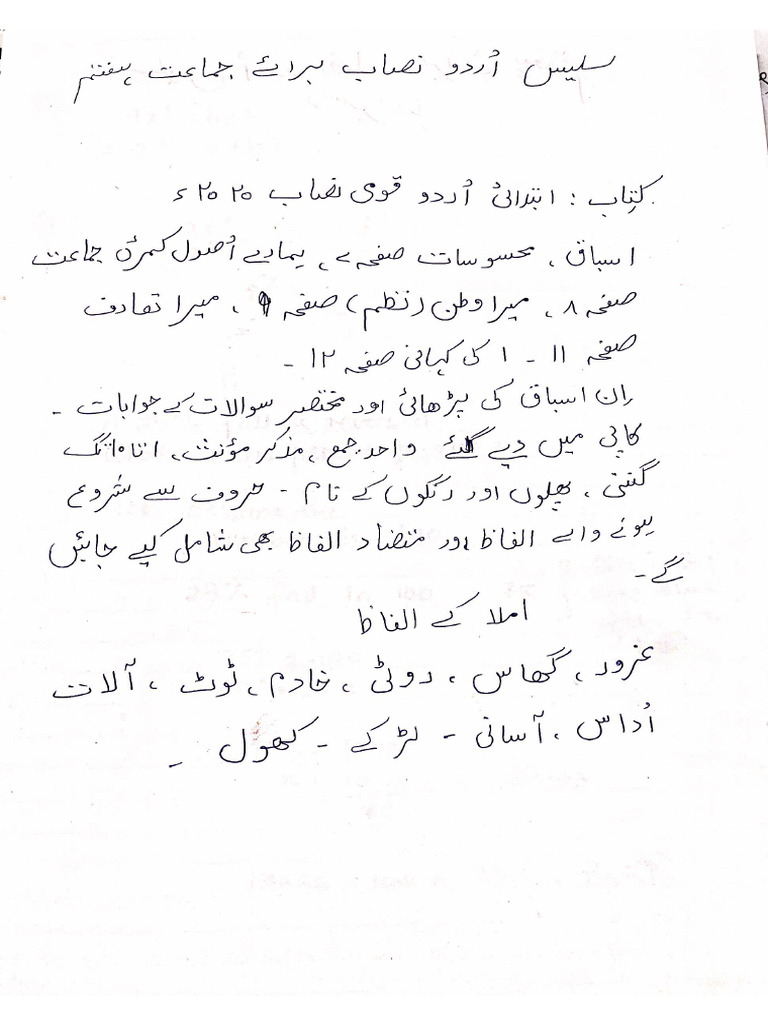 سلیس اُردو نصاب برائے جماعت ہفتم
کِتاب : ابتدائی اُردو قومی نصاب ۲۰۲۰ء
اسباق ، محسوسات صفحہ ۷، ہمارے اُصول کمرۂ جماعت
صفحہ ۸، میرا وطن (نظم) صفحہ ۹ ، میرا تعارف
صفحہ ۱۱ - ا کی کہانی صفحہ ۱۲ -
اِن اسباق کی پڑھائی اور مختصر سوالات کے جوابات -
کاپی میں دیے گئے واحد جمع ، مذکر مؤنث ، ا تا ۱۵ تک
گنتی ، پھلوں اور رنگوں کے نام - حروف سے شروع
ہونے والے الفاظ اور متضاد الفاظ بھی شامل کیے جائیں
گے -
املا کے الفاظ
غرور ، گھاس ، روٹی ، خادم ، ٹوٹ ، آلات
اُداس ، آسانی - لڑکے - کھول -